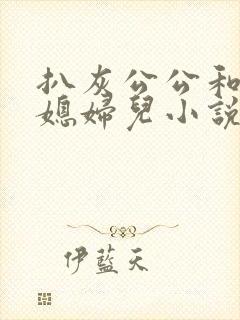 扒灰公公和
媳婦兒小說
伊藍天